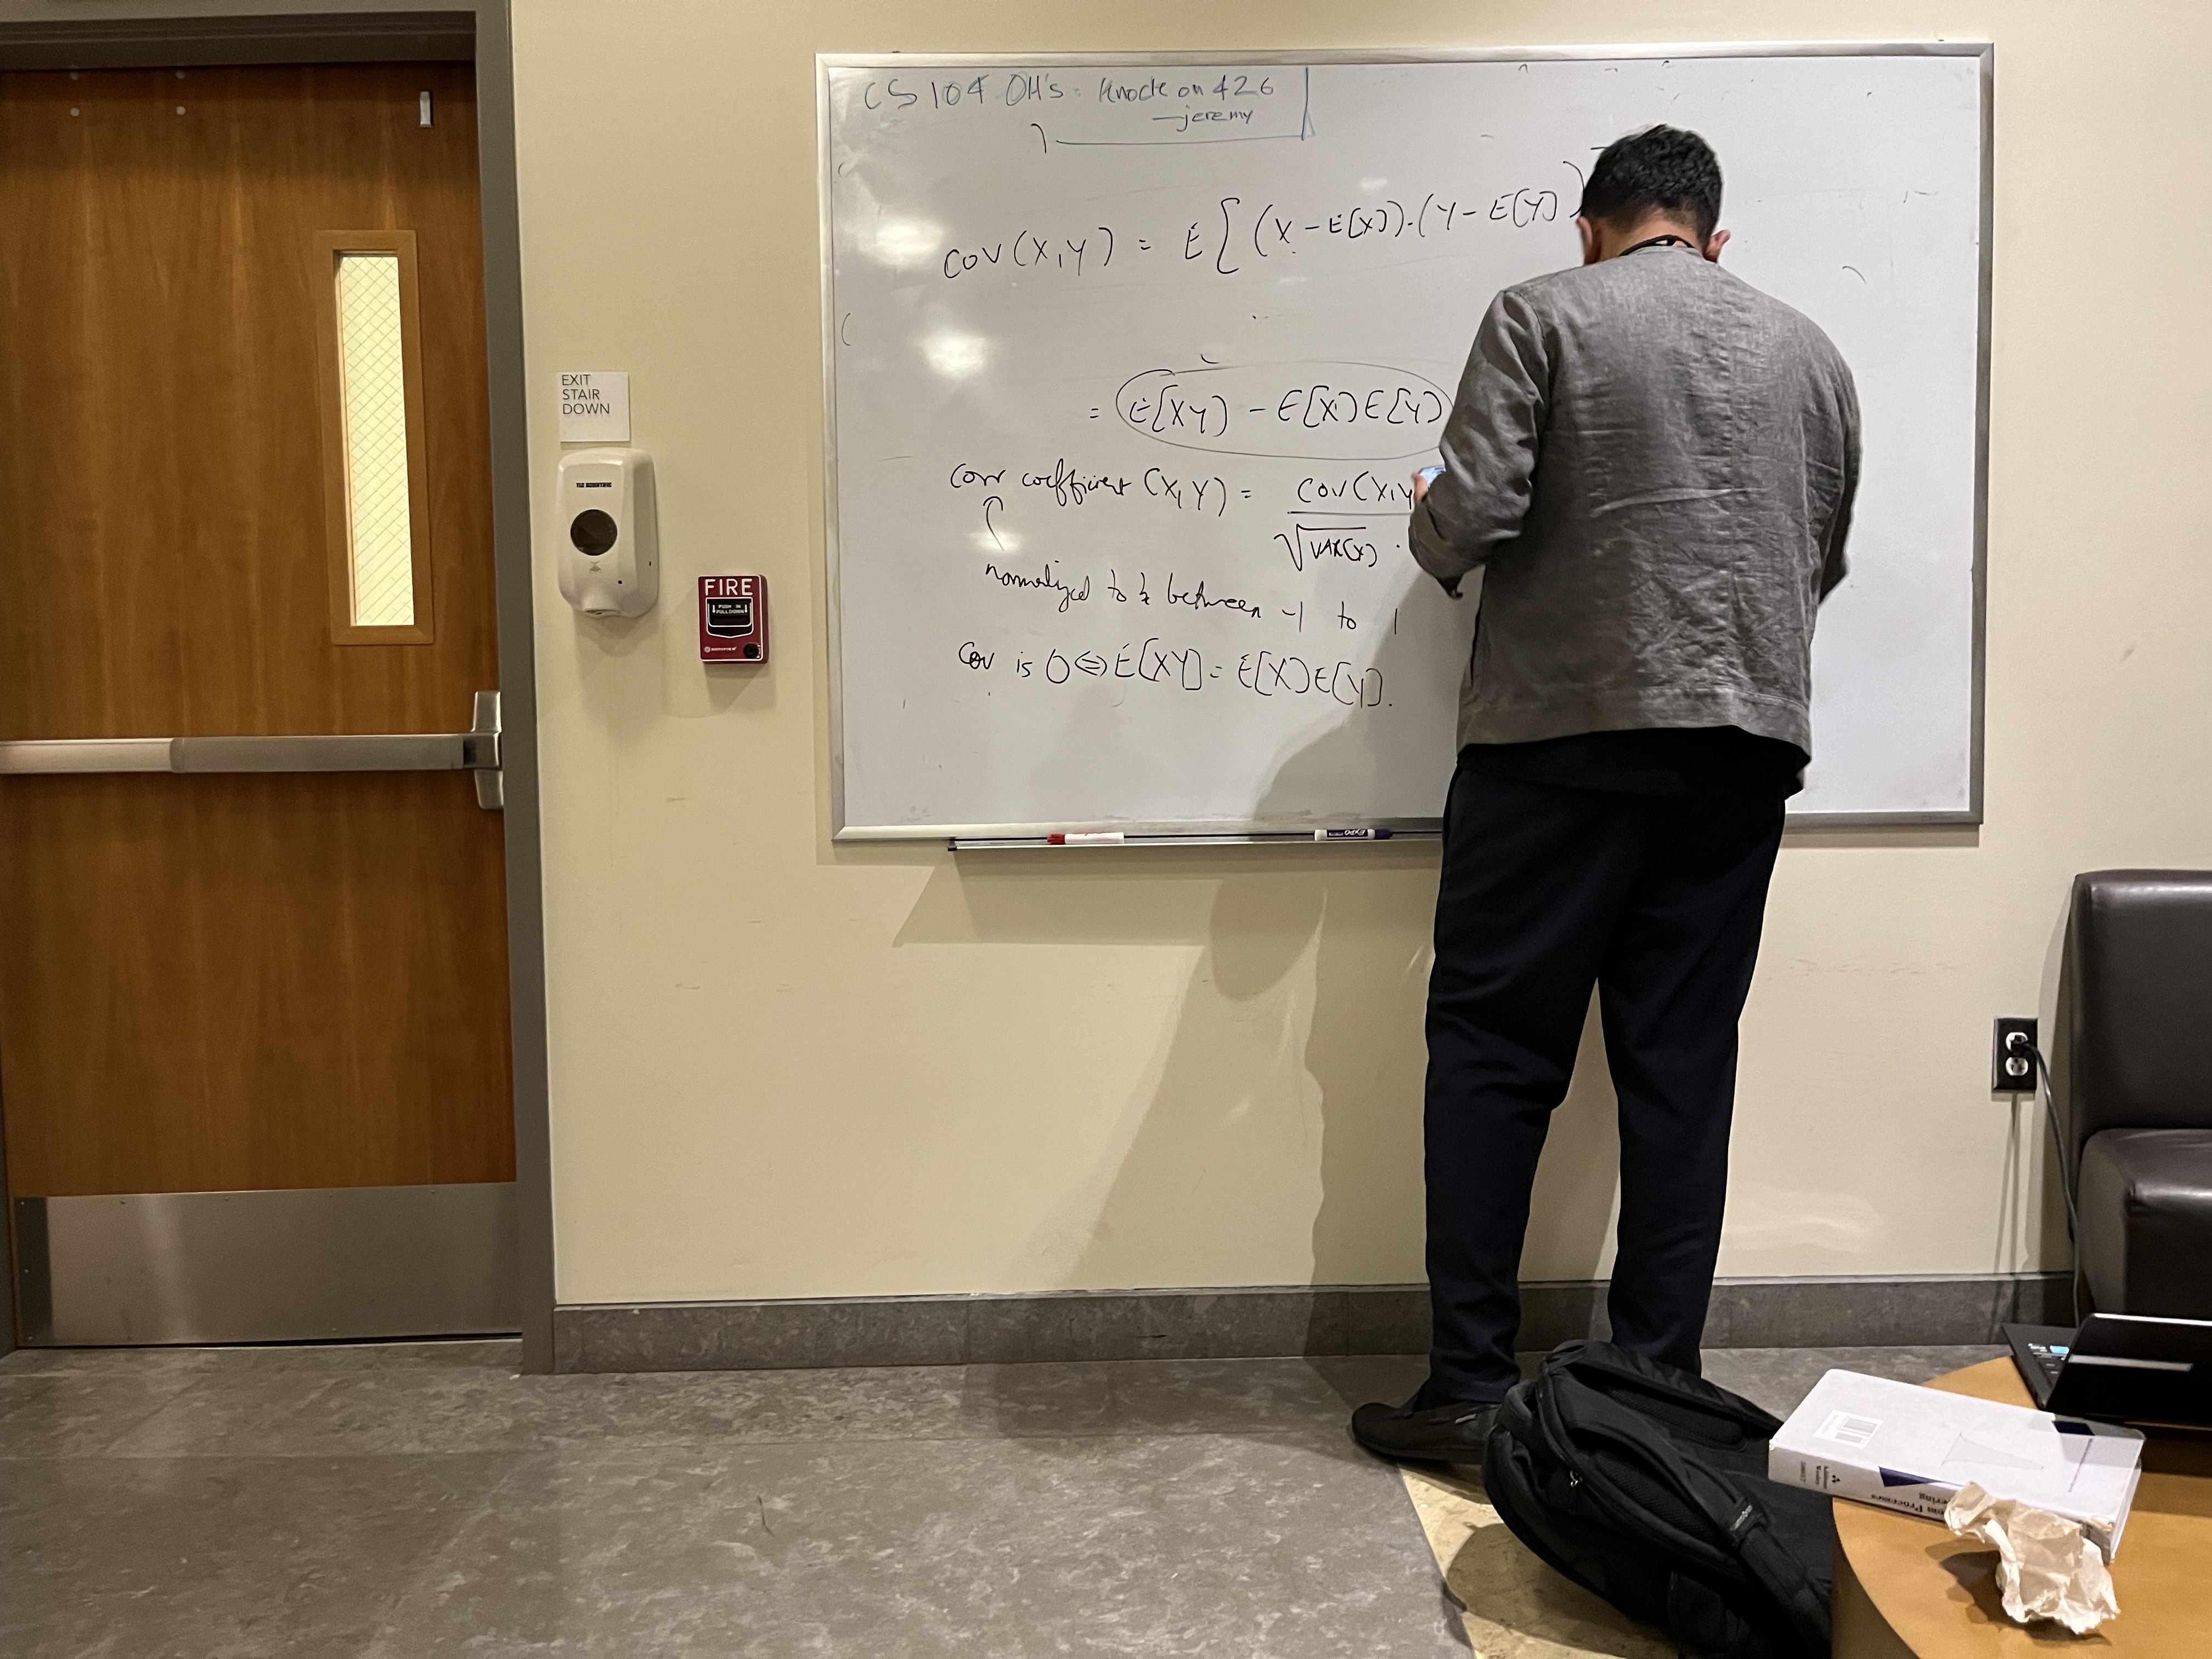 CS 104 OH's: Knock on 426
—jeremy
COV(X,Y) = E[(X - E[X])·(Y - E[Y])
= E[XY] - E[X]E[Y]
Corr coefficient (X,Y) = COV(X,Y
√VAR(X) ·
normalized to be between -1 to 1
Cov is 0 ⇔ E[XY] = E[X]E[Y].
EXIT
STAIR
DOWN
FIRE
PUSH IN
PULL DOWN
EXPO